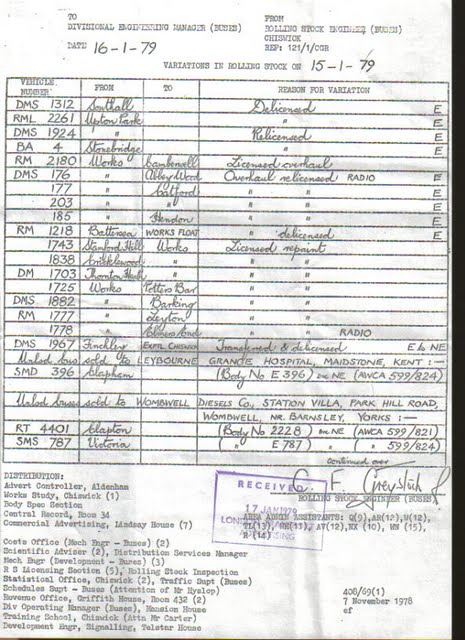 TO
DIVISIONAL ENGINEERING MANAGER (BUSES)
FROM
ROLLING STOCK ENGINEER (BUSES)
CHISWICK
REF: 121/1/CGR
DATE 16-1-79
VARIATIONS IN ROLLING STOCK ON 15-1-79
VEHICLE NUMBER FROM TO REASON FOR VARIATION
DMS 1312 Southall Delicensed E
RML 2261 Upton Park " E
DMS 1924 " Relicensed E
BA 4 Stonebridge " E
RM 2180 Works Camberwell Licensed overhaul
DMS 176 " Abbey Wood Overhaul relicensed RADIO E
177 " Catford " " E
203 " " " " E
185 " Hendon " " E
RM 1218 Battersea WORKS FLOAT " delicensed E
1743 Stamford Hill Works Licensed repaint
1838 Cricklewood " " "
DM 1703 Thornton Heath " " "
1725 Works Potters Bar " "
DMS 1882 " Barking " "
RM 1777 " Leyton " "
1778 " Elmers End " " RADIO
DMS 1967 Finchley EXPTL CHISWICK Transferred & delicensed E to NE
Unlsd bus sold to LEYBOURNE GRANGE HOSPITAL, MAIDSTONE, KENT :-
SMD 396 Clapham (Body No E 396) ex NE (AWCA 599/824)
Unlsd buses sold to WOMBWELL DIESELS Co., STATION VILLA, PARK HILL ROAD,
WOMBWELL, NR. BARNSLEY, YORKS :-
RT 4401 Clapton (Body No 2228) ex NE (AWCA 599/821)
SMS 787 Victoria ( " E 787) " " ( " 599/824)
continued over
DISTRIBUTION:
Advert Controller, Aldenham
Works Study, Chiswick (1)
Body Spec Section
Central Record, Room 34
Commercial Advertising, Lindsay House (7)
RECEIVED
17 JAN 1979
ROLLING STOCK ENGINEER (BUSES)
AREA ADMIN ASSISTANTS: Q(9), AR(12), W(12),
Costs Office (Mech Engr - Buses) (2)
Scientific Adviser (2), Distribution Services Manager
Mech Engr (Development - Buses) (3)
R S Licensing Section (5), Rolling Stock Inspection
Statistical Office, Chiswick (2), Traffic Supt (Buses)
Schedules Supt - Buses (Attention of Mr Hyslop)
Revenue Office, Griffith House, Room 432 (2)
Div Operating Manager (Buses), Mansion House
Training School, Chiswick (Attn Mr Carter)
Development Engr, Signalling, Telstar House
408/69(1)
7 November 1978
ef